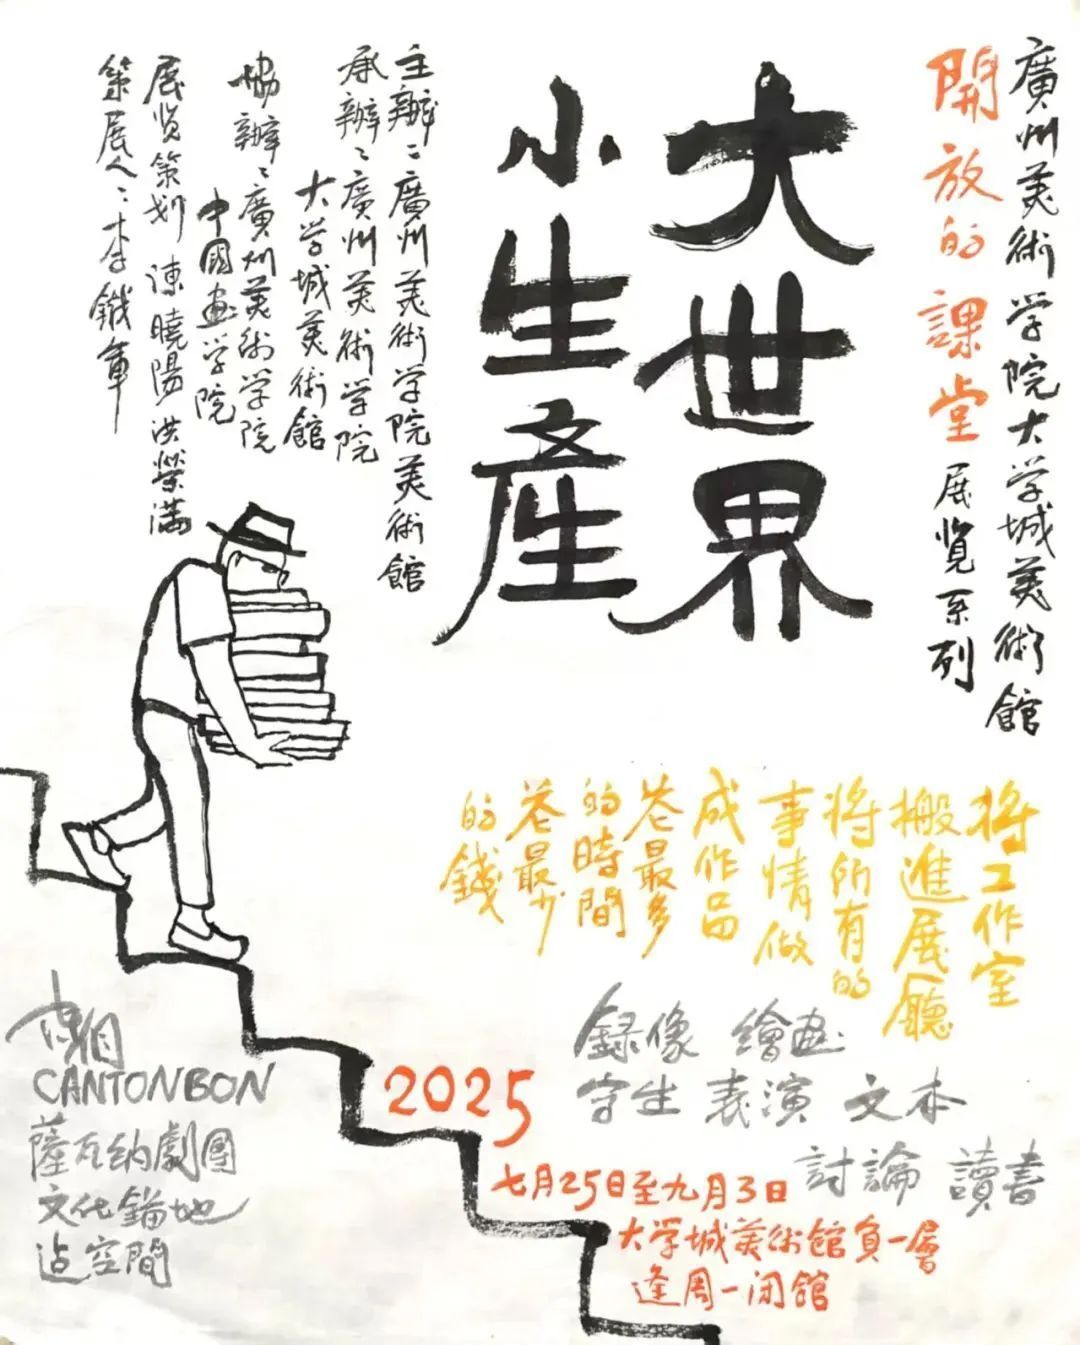 廣州美術学院大学城美術館
開放的課堂展览系列
大世界
小生産
主辦：廣州美術学院美術館
承辦：廣州美術学院
大学城美術館
協辦：廣州美術学院
中國画学院
展览策划 陳曉陽 洪榮满
策展人：李鐵軍
将工作室
搬進展廳
将所有的
事情做
成作品
花最多
的時間
花最少
的錢
録像 繪画
字生 表演 文本
討論 讀書
2025
七月25日至九月3日
大学城美術館負一層
逢周一闭館
CANTONBON
薩瓦纳劇團
文化錨地
空間